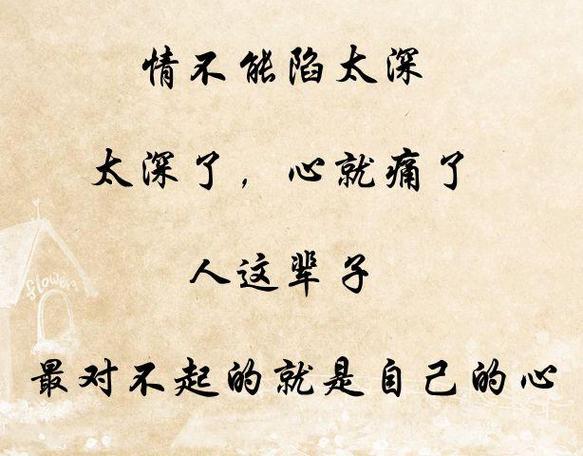 情不能陷太深
太深了，心就痛了
人这辈子
flowers
最对不起的就是自己的心